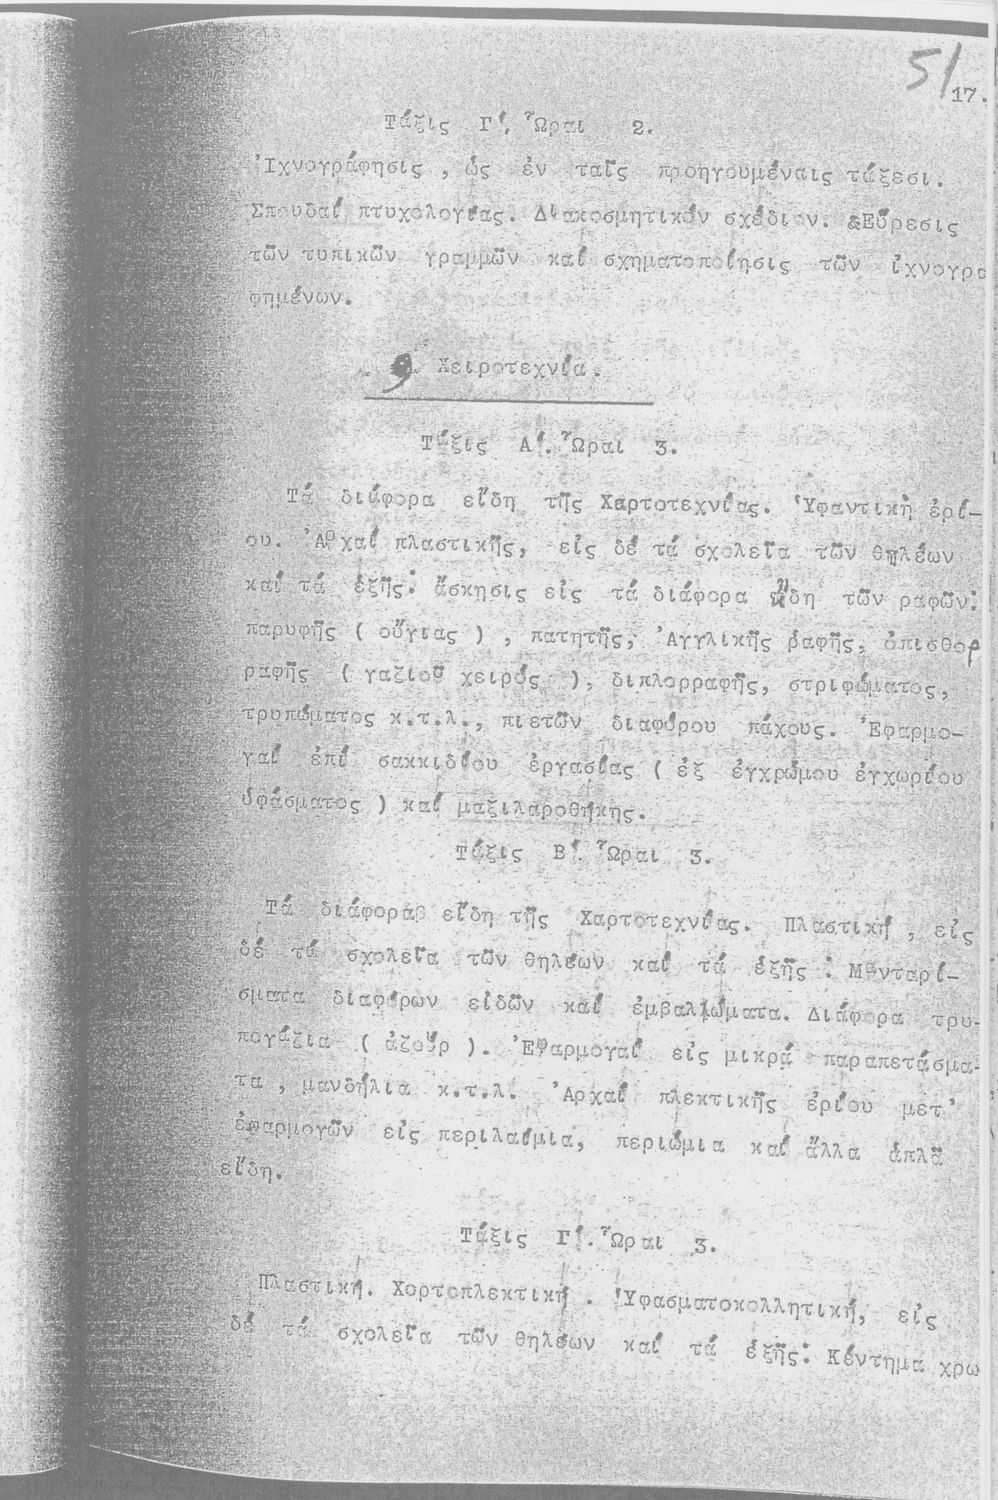 51
17.
Τάξις Γ΄. Ὧραι 2.
Ἰχνογράφησις , ὡς ἐν ταῖς προηγουμέναις τάξεσι.
Σπουδαί πτυχολογίας. Διακοσμητικόν σχέδιον. &Εὕρεσις
τῶν τυπικῶν γραμμῶν καί σχηματοποίησις τῶν ἰχνογρα
φημένων.
Χειροτεχνία.
Τάξις Α΄. Ὧραι 3.
Τά διάφορα εἴδη τῆς Χαρτοτεχνίας. Ὑφαντική ἐρί-
ου. Ἀρχαί πλαστικῆς, εἰς δέ τά σχολεῖα τῶν θηλέων
καί τά ἑξῆς: ἄσκησις εἰς τά διάφορα εἴδη τῶν ραφῶν:
παρυφῆς ( οὔγιας ) , πατητῆς, Ἀγγλικῆς ῥαφῆς, ὀπισθορ
ραφῆς ( γαζιοῦ χειρός ), διπλορραφῆς, στριφώματος,
τρυπώματος κ.τ.λ., πιετῶν διαφόρου πάχους. Ἐφαρμο-
γαί ἐπί σακκιδίου ἐργασίας ( ἐξ ἐγχρώμου ἐγχωρίου
ὑφάσματος ) καί μαξιλαροθήκης.
Τάξις Β΄. Ὧραι 3.
Τά διάφοραβ εἴδη τῆς Χαρτοτεχνίας. Πλαστική , εἰς
δέ τά σχολεῖα τῶν θηλέων καί τά ἑξῆς : Μανταρί-
σματα διαφόρων εἰδῶν καί ἐμβαλώματα. Διάφορα τρυ-
πογάζια ( ἀζούρ ). Ἐφαρμογαί εἰς μικρά παραπετάσμα-
τα , μανδήλια κ.τ.λ. Ἀρχαί πλεκτικῆς ἐρίου μετ'
ἐφαρμογῶν εἰς περιλαίμια, περιώμια καί ἄλλα ἁπλᾶ
εἴδη.
Τάξις Γ΄. Ὧραι 3.
Πλαστική. Χορτοπλεκτική . Ὑφασματοκολλητική, εἰς
δέ τά σχολεῖα τῶν θηλέων καί τά ἑξῆς: Κέντημα χρω